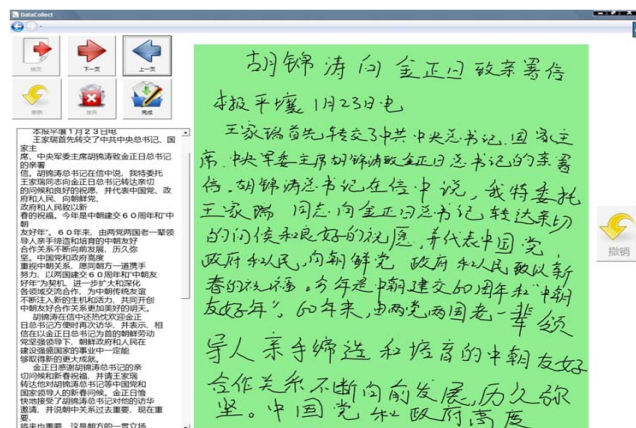 DataCollect
换页
下一页
上一页
撤销
放弃
完成
本报平壤1月23日电
王家瑞首先转交了中共中央总书记、国
家主
席、中央军委主席胡锦涛致金正日总书记
的亲署
信。胡锦涛总书记在信中说，我特委托
王家瑞同志向金正日总书记转达亲切
的问候和良好的祝愿，并代表中国党、政
府和人民，向朝鲜党、
政府和人民致以新
春的祝福。今年是中朝建交60周年和“中
朝
友好年”。60年来，由两党两国老一辈领
导人亲手缔造和培育的中朝友好
合作关系不断向前发展，历久弥
坚。中国党和政府高度
重视中朝关系，愿同朝方一道携手
努力，以两国建交60周年和“中朝友
好年”为契机，进一步扩大和深化
各领域交流合作，为中朝传统友谊
不断注入新的生机和活力，共同开创
中朝友好合作关系更加美好的明天。
胡锦涛在信中还热忱欢迎金正
日总书记方便时再次访华，并表示，相
信在以金正日总书记为首的朝鲜劳动
党坚强领导下，朝鲜政府和人民在
建设强盛国家的事业中一定能
够取得新的更大成就。
金正日感谢胡锦涛总书记的亲
切问候和新春祝福，并请王家瑞
转达他对胡锦涛总书记等中国党和
国家领导人的新春问候。金正日愉
快地接受了胡锦涛总书记对他的访华
邀请，并说朝中关系过去重要，现在重
要，
将来也重要，这是朝方的一贯立场
胡锦涛向金正日致亲署信
本报平壤1月23日电
王家瑞首先转交了中共中央总书记、国家主
席、中央军委主席胡锦涛致金正日总书记的亲署
信。胡锦涛总书记在信中说，我特委托
王家瑞同志向金正日总书记转达亲切
的问候和良好的祝愿，并代表中国党、
政府和人民，向朝鲜党、政府和人民致以新
春的祝福。今年是中朝建交60周年和“中朝
友好年”。60年来，由两党两国老一辈领
导人亲手缔造和培育的中朝友好
合作关系不断向前发展，历久弥
坚。中国党和政府高度
撤销